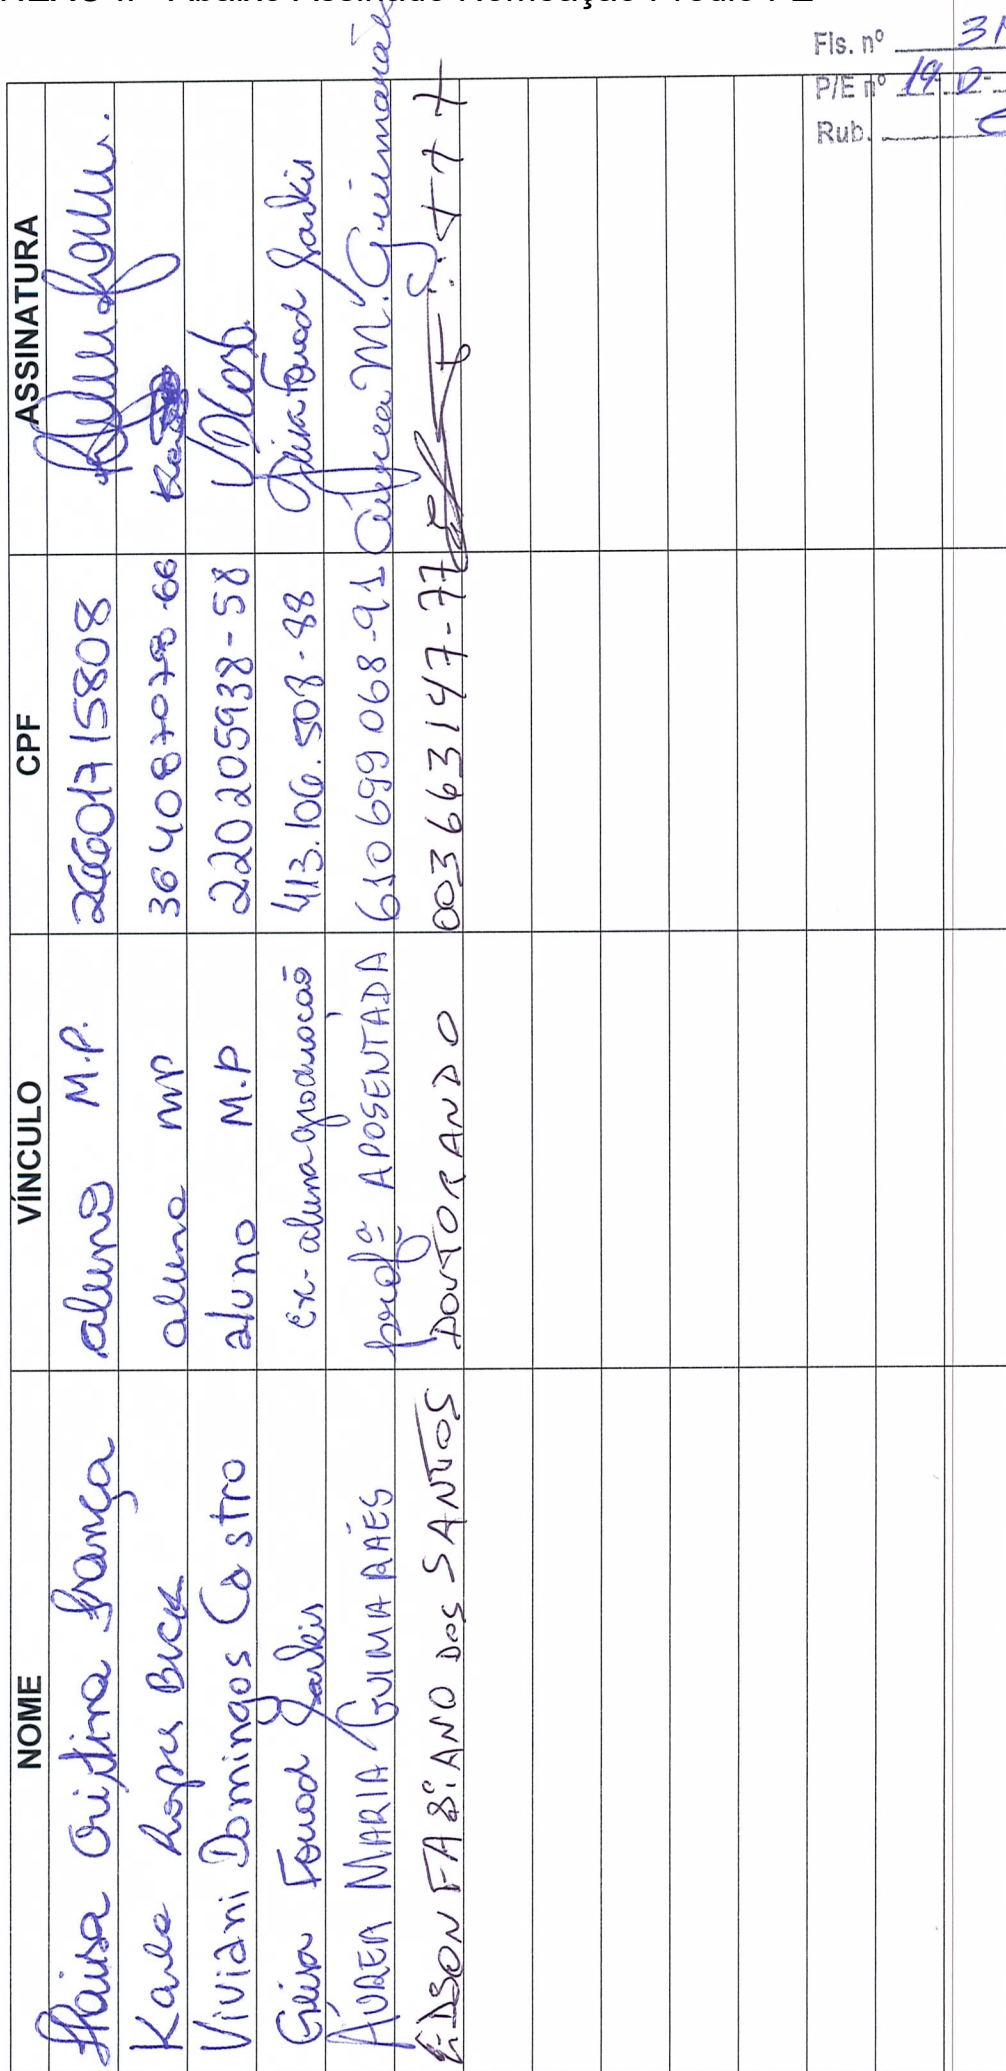 Abaixo Assinado Nomeação Prédio PE
Fls. nº
P/E nº
Rub.
NOME VÍNCULO CPF ASSINATURA
Cristina França aluna M.P. 26601715808
Karla Lopes Buck aluna MP 364087078-66
Viviani Domingos Castro aluno M.P 220205938-58 VDCast.
Geisa Fouad Sarkis ex-aluna graduação 413.106.508-88 Geisa Fouad Sarkis
ÁUREA MARIA GUIMARÃES profª APOSENTADA 610699068-91 Áurea M. Guimarães
EDSON FABIANO DOS SANTOS DOUTORANDO 003663147-77